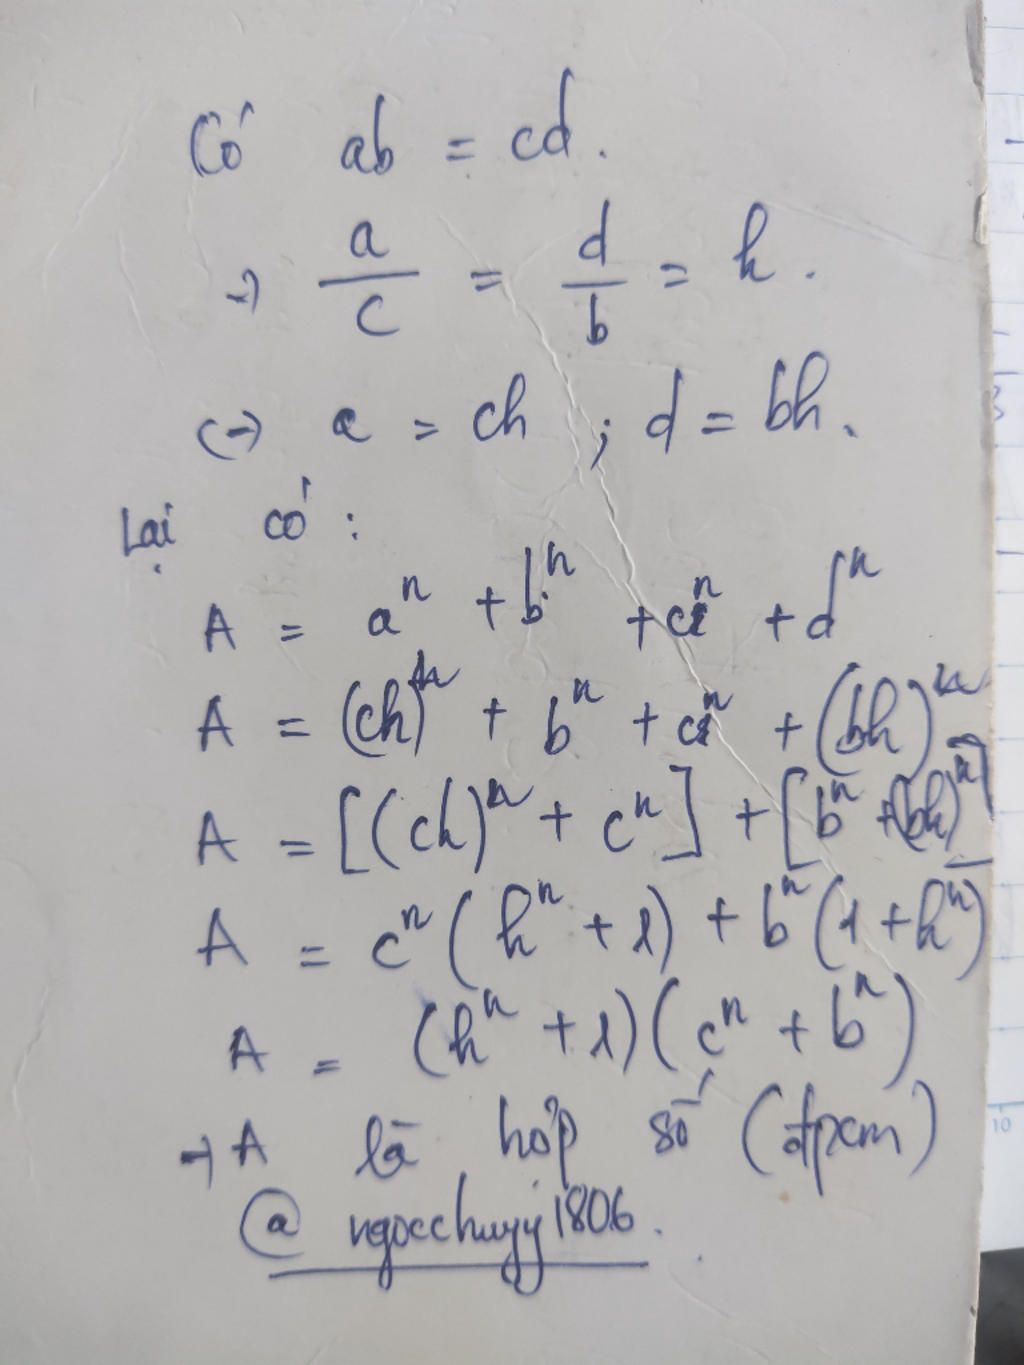 Có ab = cd.
→ a/c = d/b = h.
↔ a = ch ; d = bh.
Lại có :
A = aⁿ + bⁿ + cⁿ + dⁿ
A = (ch)ⁿ + bⁿ + cⁿ + (bh)ⁿ
A = [(ch)ⁿ + cⁿ] + [bⁿ + (bh)ⁿ]
A = cⁿ (hⁿ + 1) + bⁿ (1 + hⁿ)
A = (hⁿ + 1)(cⁿ + bⁿ)
→ A là hợp số (đpcm)
@ ngocchuyy1806.
10